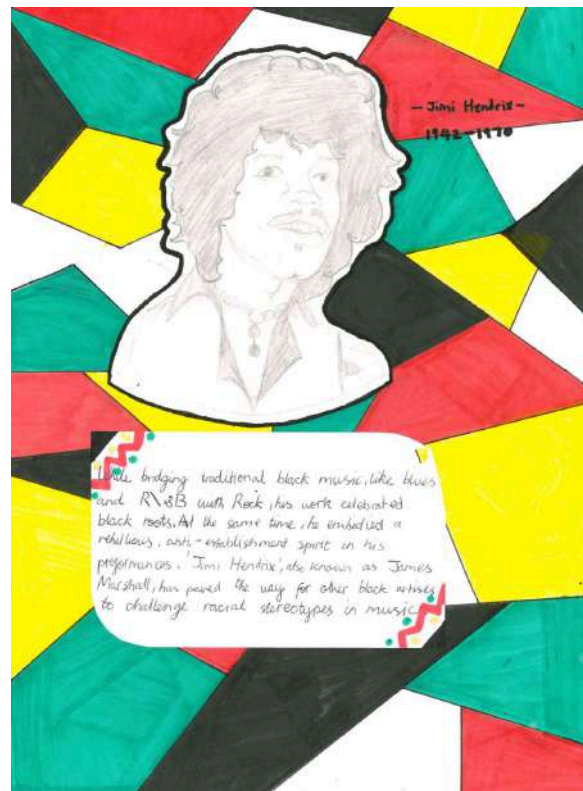 - Jimi Hendrix -
1942-1970
While bridging traditional black music, like blues
and R\&B with Rock, his work celebrated
black roots. At the same time, he embodied a
rebellious, anti-establishment spirit in his
preformances. 'Jimi Hendrix', also known as James
Marshall, has paved the way for other black artists
to challenge racial stereotypes in music